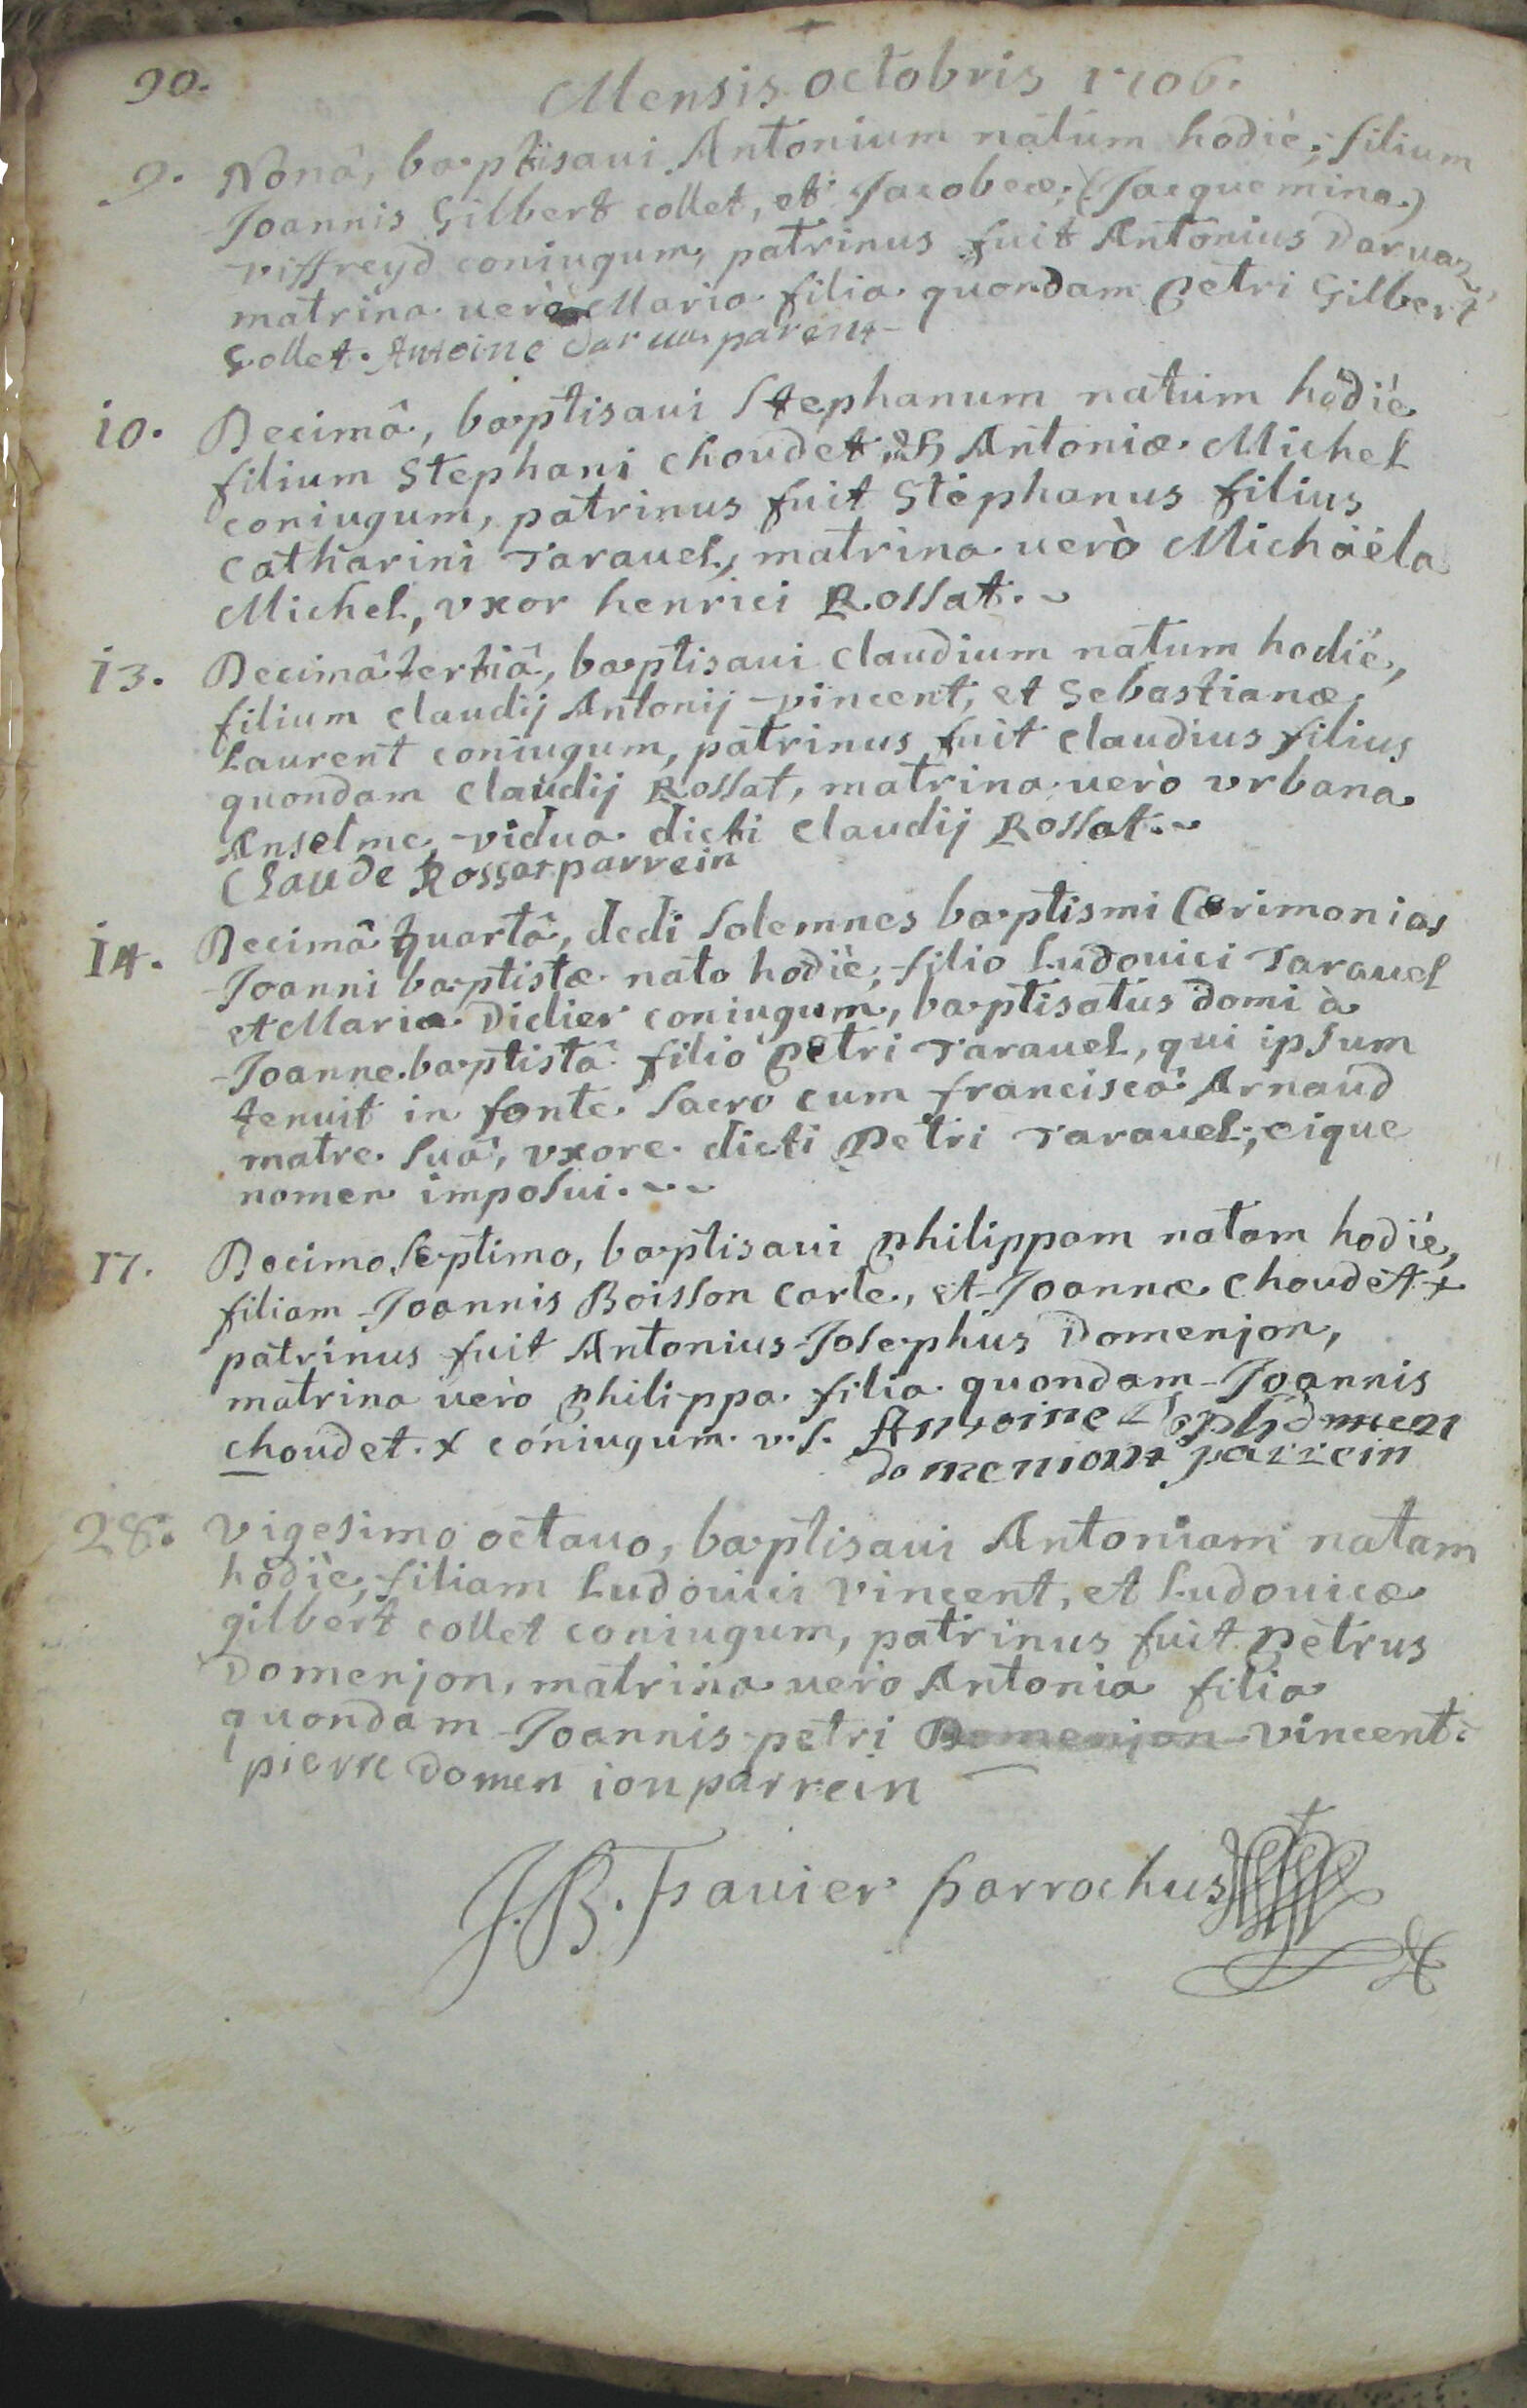 90.
Mensis octobris 1706.
9. Nonâ, baptisaui Antonium natum hodiè, filium
Joannis Gilbert collet, et Jacobeæ, (Jacquemina)
viffreyd coniugum, patrinus fuit Antonius Daruaz,
matrina uerò Maria filia quondam Petri Gilbert
Collet. Antoine
10. Decimâ, baptisaui Stephanum natum hodiè
filium Stephani choudet, & Antoniæ Michel
coniugum, patrinus fuit Stephanus filius
Catharini Tarauel, matrina uerò Michaëla
Michel, vxor henrici Rossat.
13. Decimâ tertiâ, baptisaui claudium natum hodiè,
filium claudij Antonij vincent, et Sebastianæ
Laurent coniugum, patrinus fuit claudius filius
quondam claudij Rossat, matrina uerò vrbana
Anselme, vidua dicti claudij Rossat.
Claude Rossat parrein
14. Decimâ quartâ, dedi Solemnes baptismi Cærimonias
Joanni baptistæ nato hodiè, filio Ludouici Tarauel
et Maria Didier coniugum, baptisatus domi à
Joanne baptistâ filio Petri Tarauel, qui ipsum
tenuit in fonte Sacro cum franciscâ Arnaud
matre Suâ, vxore dicti Petri Tarauel, eique
nomen imposui.
17. Decimo Septimo, baptisaui philippam natam hodiè,
filiam Joannis Boisson Carle, et Joannæ choudet x
patrinus fuit Antonius Josephus Domenjon,
matrina uerò philippa filia quondam Joannis
choudet. x coniugum v.s. Antoine
domeniont parrein
28. Vigesimo octauo, baptisaui Antoniam natam
hodiè, filiam Ludouici Vincent, et Ludouicæ
gilbert collet coniugum, patrinus fuit Petrus
Domenjon, matrina uerò Antonia filia
quondam Joannis petri Domenjon Vincent.
pierre domen ion parrein
J.B. Frauier parrochus